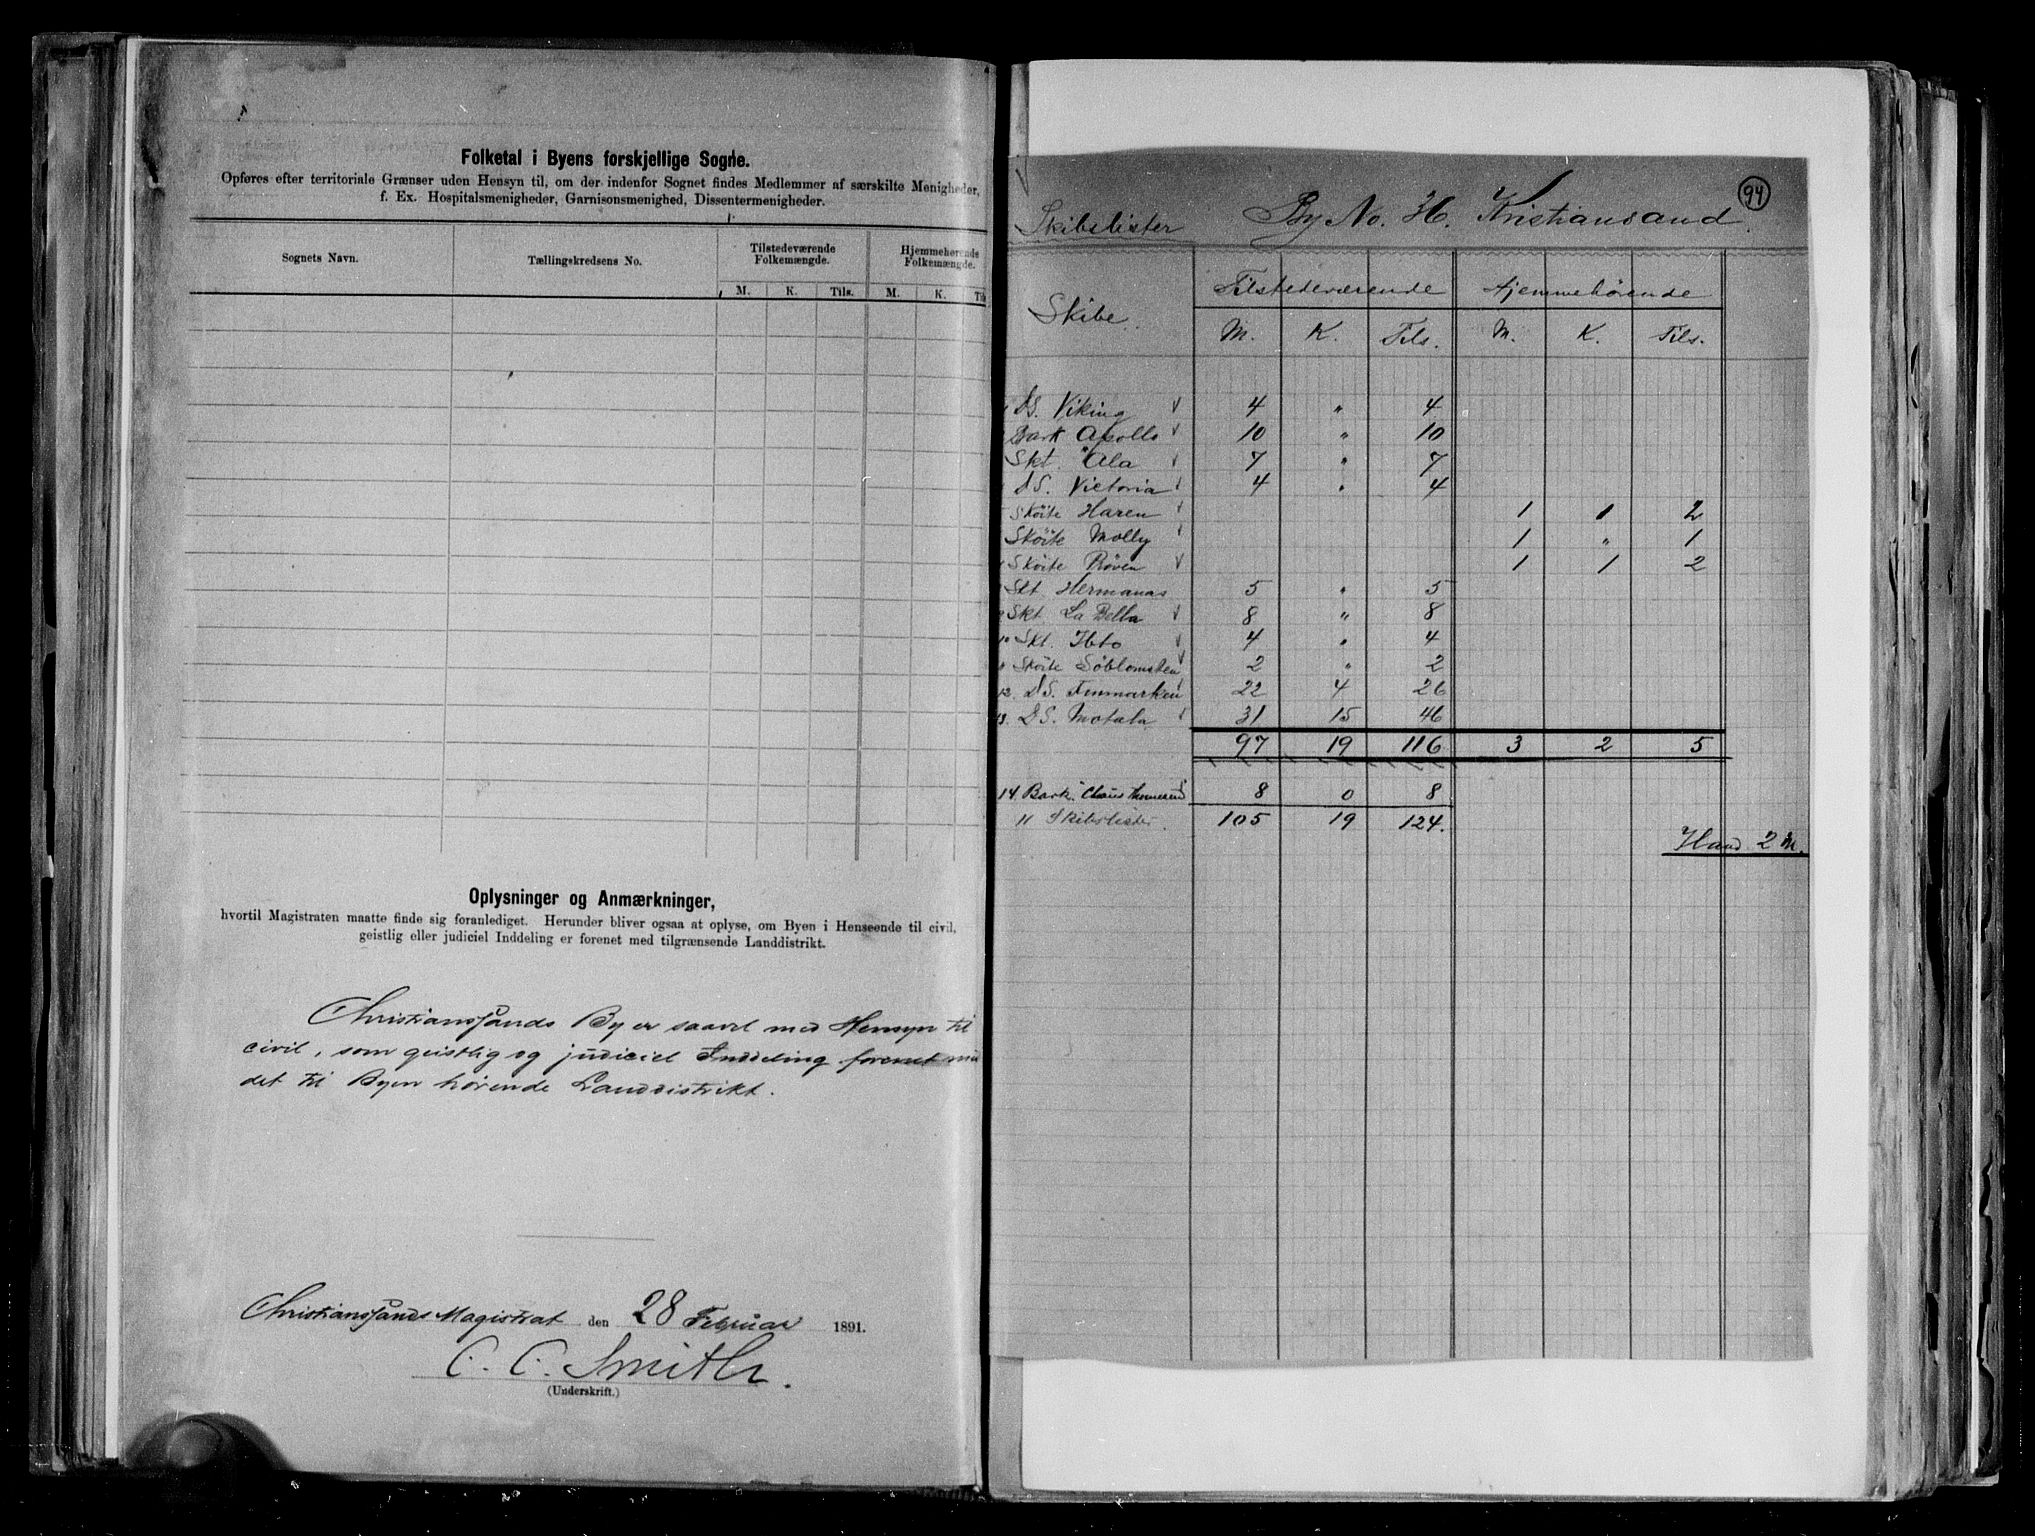 Folketal i Byens forskjellige Sogne.
Opføres efter territoriale Grænser uden Hensyn til, om der indenfor Sognet findes Medlemmer af særskilte Menigheder,
f. Ex. Hospitalsmenigheder, Garnisonsmenighed, Dissentermenigheder.
Sognets Navn. Tællingskredsens No. Tilstedeværende Folkemængde. Hjemmehørende Folkemængde.
M. K. Tils. M. K. Tils
Oplysninger og Anmærkninger,
hvortil Magistraten maatte finde sig foranlediget. Herunder bliver ogsaa at oplyse, om Byen i Henseende til civil,
geistlig eller judiciel Inddeling er forenet med tilgrænsende Landdistrikt.
Christianssands By er saavel med Hensyn til
civil, som geistlig og judiciel Inddeling forenet
det til Byen hørende Landdistrikt.
Christianssands Magistrat den 28 Februar 1891.
C. C. Smith.
(Underskrift.)
94
Skibslister By No. 36. Kristiansand.
Skibe. Tilstedeværende Hjemmehørende
M. K. Tils. M. K. Tils.
DS. Viking √ 4 " 4
Bark Apollo √ 10 " 10
Skt. Ala √ 7 " 7
DS. Victoria √ 4 " 4
Skøite Haren √ 1 1 2
Skøite Molly √ 1 " 1
Skøite Prøven √ 1 1 2
Skt. Hermanas 5 " 5
Skt. La Bella √ 8 " 8
10 Skt. √ 4 " 4
Skøite Søblomsten √ 2 " 2
12. DS. Finmarken √ 22 4 26
13. DS. Motala √ 31 15 46
97 19 116 3 2 5
14. Bark. Claus 8 0 8
11 Skibslister. 105 19 124.
2 M.